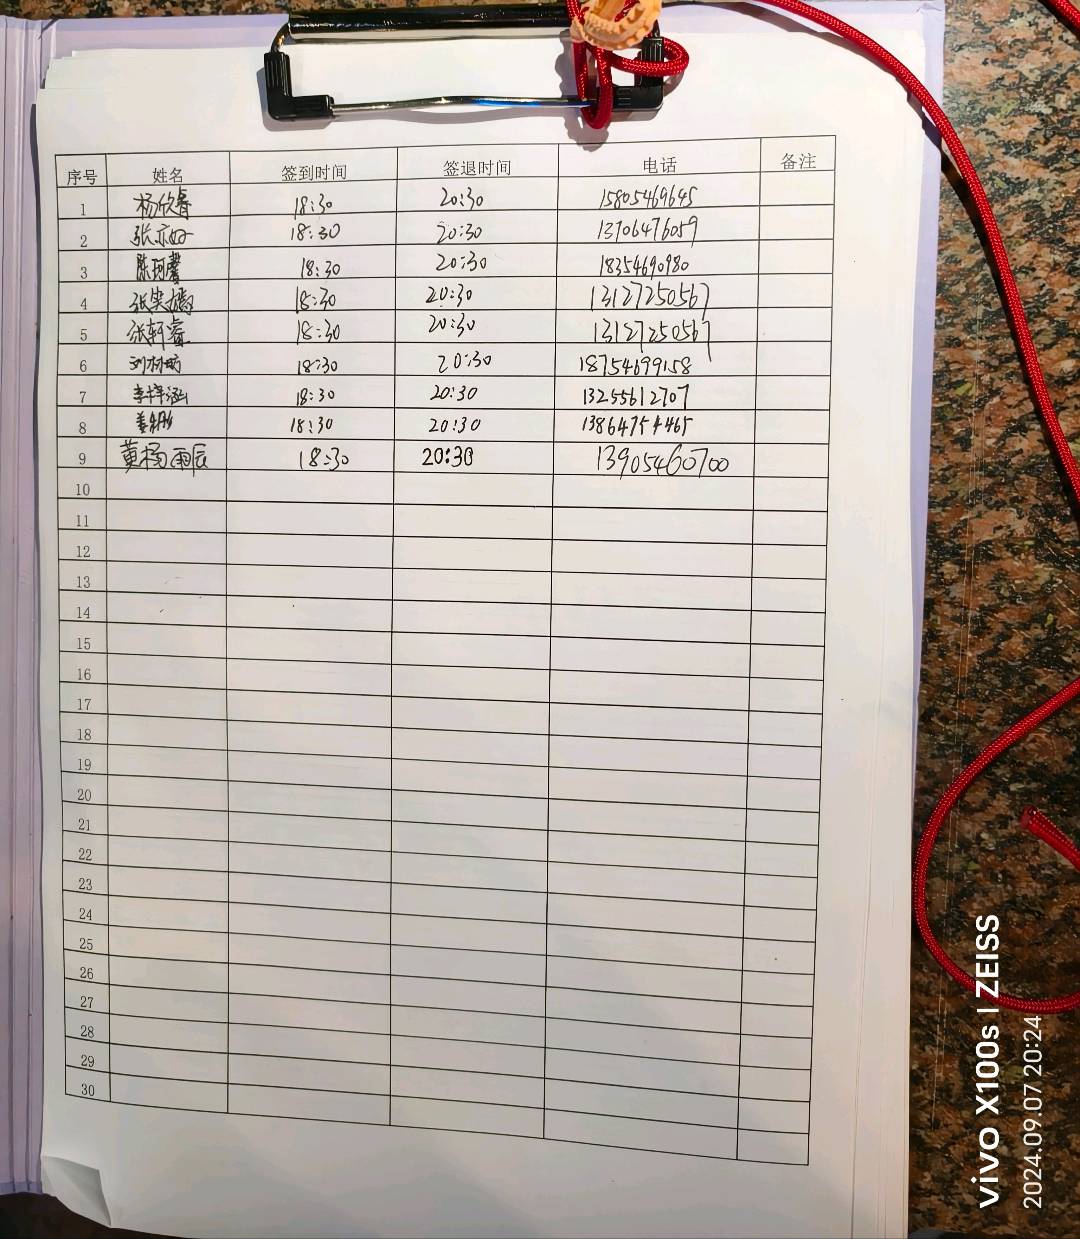 序号 姓名 签到时间 签退时间 电话 备注
1 杨欣睿 18:30 20:30 15805469645
2 张亦如 18:30 20:30 13706476059
3 陈珂馨 18:30 20:30 18354690980
4 张奕 18:30 20:30 13127250567
5 张轩睿 18:30 20:30 13127250567
6 18:30 20:30 18754699158
7 李梓涵 18:30 20:30 13255612707
8 姜 18:30 20:30 13864754465
9 黄杨雨辰 18:30 20:30 13905460700
10
11
12
13
14
15
16
17
18
19
20
21
22
23
24
25
26
27
28
29
30
vivo X100s | ZEISS
2024.09.07 20:24